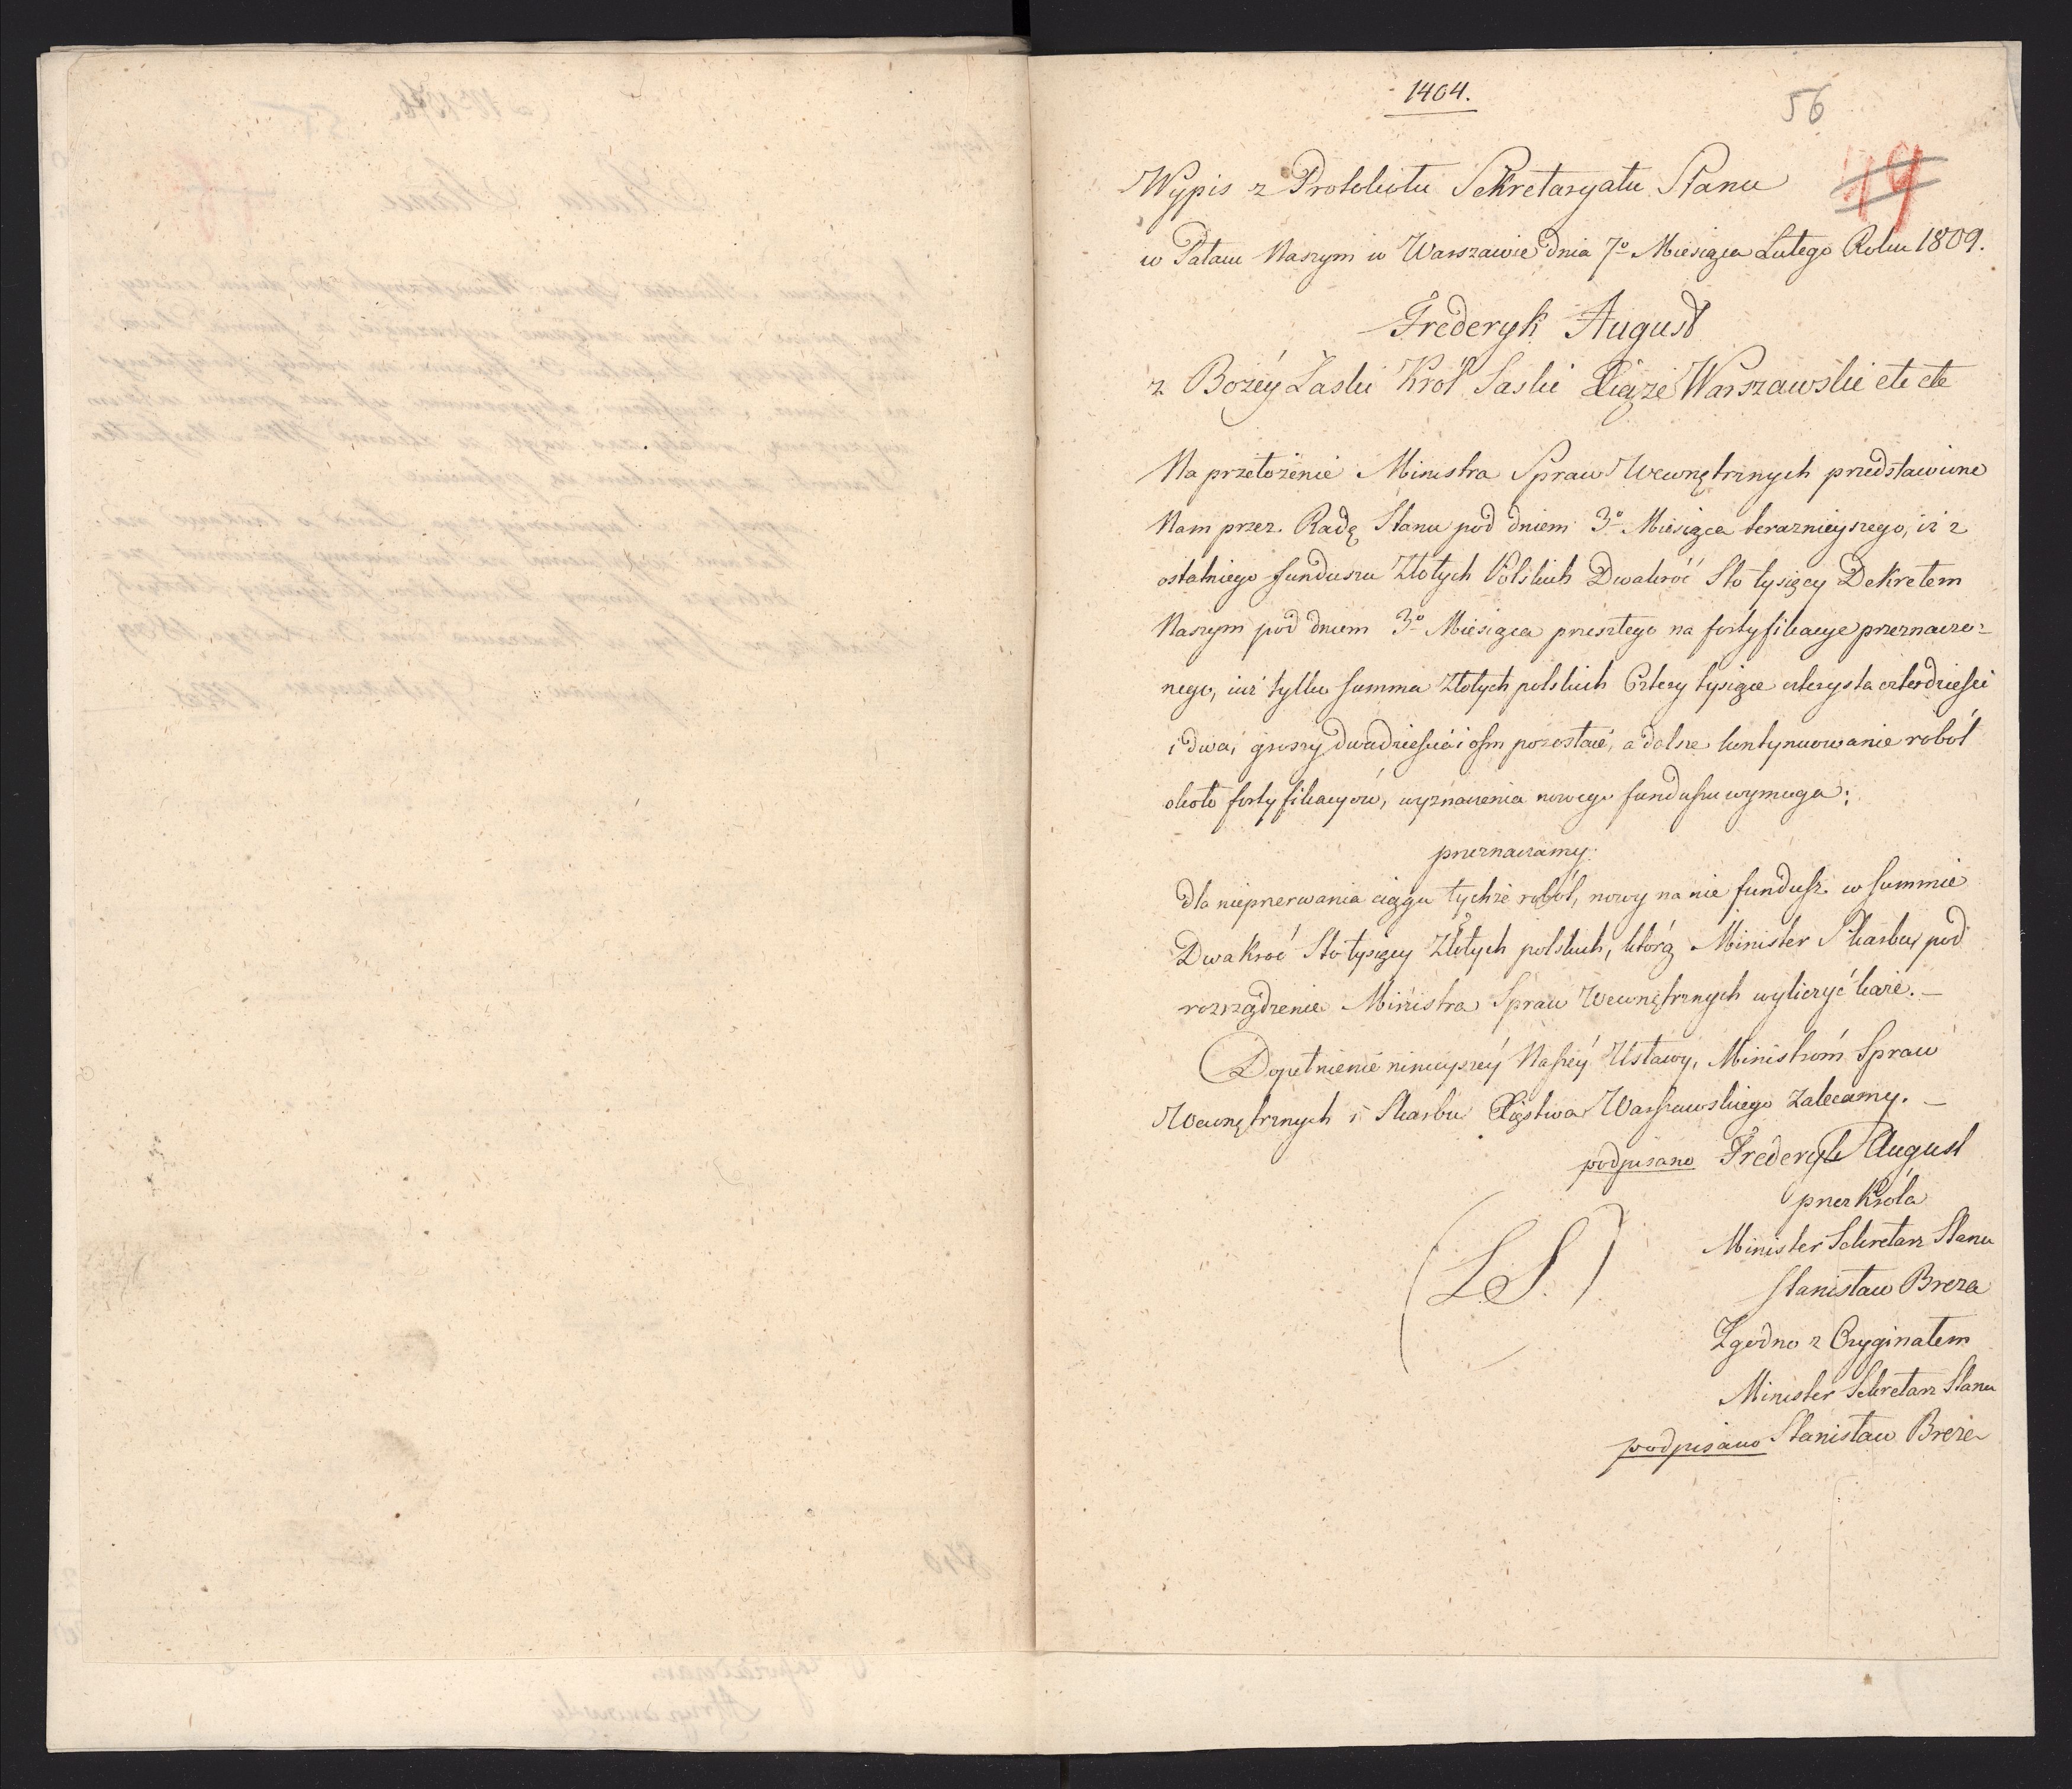 1404.
56
49
Wypis z Protokułu Sekretaryatu Stanu
w Pałacu Naszym w Warszawie dnia 7º Miesiąca Lutego Roku 1809.
Frederyk August
z Bożéy Łaski Król Saski Xiąże Warszawski etc etc
Na przełożenie Ministra Spraw Wewnętrznych przedstawione
Nam przez Radę Stanu pod dniem 3º Miesiąca teraznieyszego, iż z
ostatniego funduszu Złotych Polskich Dwakroć Sto tysięcy Dekretem
Naszym pod dniem 3º Miesiąca przeszłego na fortyfikacye przeznaczo-
nego, iuż tylko summa Złotych polskich Cztery tysiące czterysta czterdzieści
i dwa, groszy dwadzieścia i osm pozostaie, a dalsze kontynuowanie robót
około fortyfikacyów, wyznaczenia nowego funduszu wymaga;
przeznaczamy:
dla nieprzerwania ciągu tychże robót, nowy na nie fundusz w summie
Dwakroć Sto tysięcy Złotych polskich, którą Minister Skarbu pod
rozrządzenie Ministra Spraw Wewnętrznych wyliczyć każe. _
Dopełnienie ninieyszéy Naszéy Ustawy, Ministróm Spraw
Wewnętrznych i Skarbu Xięstwa Warszawskiego zalecamy. _
podpisano Frederyk August
przez Króla
Minister Sekretarz Stanu
Stanisław Breza
(L.S.)
Zgodno z Oryginałem
Minister Sekretarz Stanu
podpisano Stanisław Breza